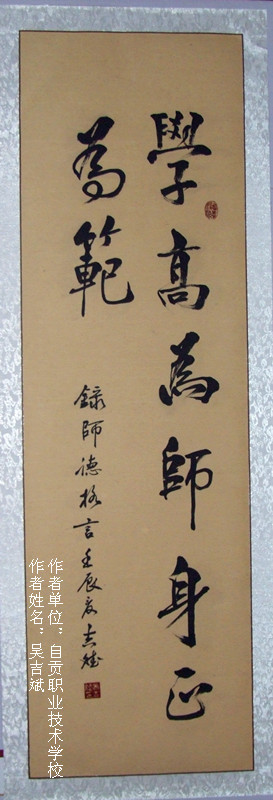 學高為師身正
為範
録師德格言壬辰夏吉斌
作者单位：自贡职业技术学校
作者姓名：吴吉斌